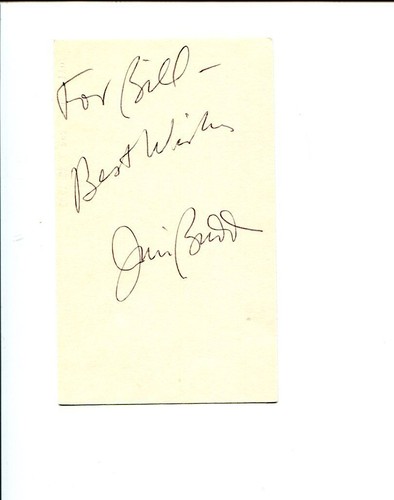 For Bill –
Best Wishes
Jim Budd